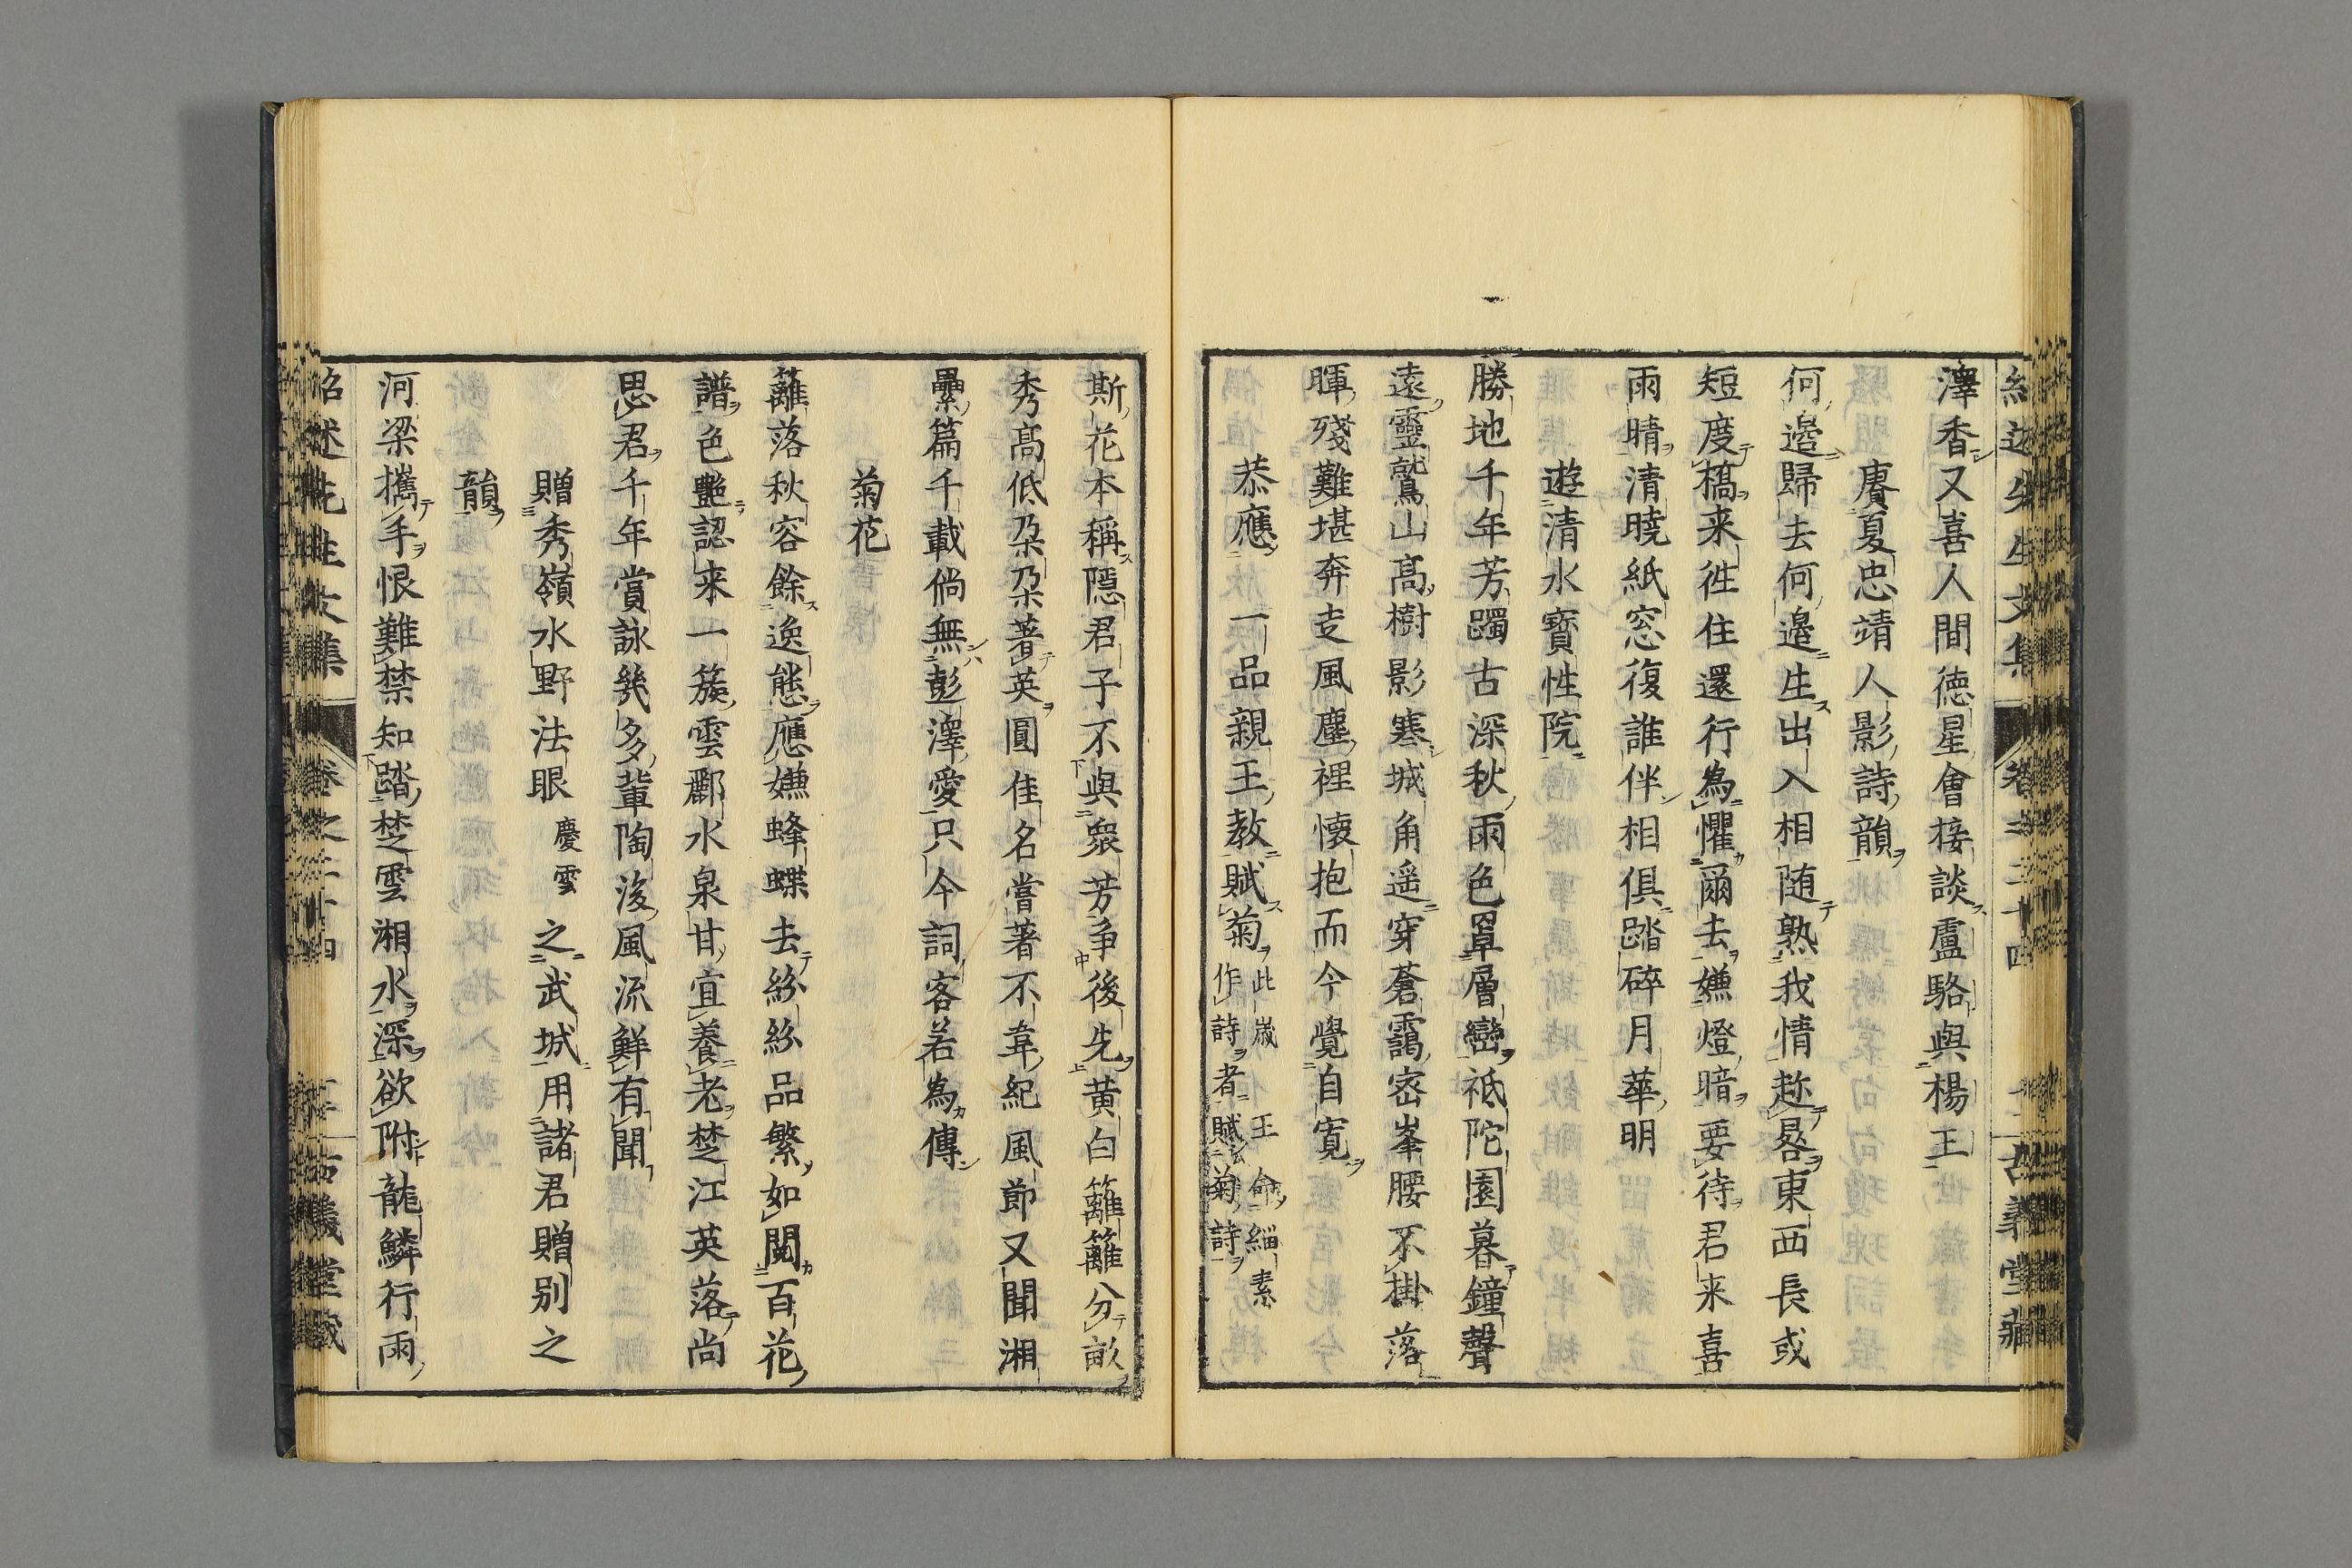 澤香又喜人間徳星會接談盧駱與楊王
賡夏忠靖人影詩韻
何邉歸去何邉生出入相随熟我情趂晷東西長或
短度橋来徃住還行為懼爾去嫌燈暗要待君来喜
雨晴清曉紙窓復誰伴相俱踏碎月華明
遊清水寶性院
勝地千年芳躅古深秋雨色罩層巒祗陀園暮鐘聲
遠靈鷲山高樹影寒城角遥穿蒼靄宻峯腰不掛落
暉殘難堪奔走風塵裡懐抱而今覺自寛
恭應一品親王教賦菊
此歳王命緇素
作詩者賦菊詩
斯花本稱隠君子不與衆芳争後先黄白籬籬分畝
秀高低朶朶著英圓佳名嘗著不韋紀風節又聞湘
纍篇千載倘無彭澤愛只今詞客若為傳
菊花
籬落秋容餘逸態應嫌蜂蝶去紛紛品繁如閲百花
譜色艶認来一簇雲酈水泉甘宜養老楚江英落尚
思君千年賞詠幾多輩陶後風流鮮有聞
贈秀嶺水野法眼慶雲之武城用諸君贈别之
韻
河梁攜手恨難禁知踏楚雲湘水深欲附龍鱗行雨
紹述先生文集 卷之二十四 古義堂藏